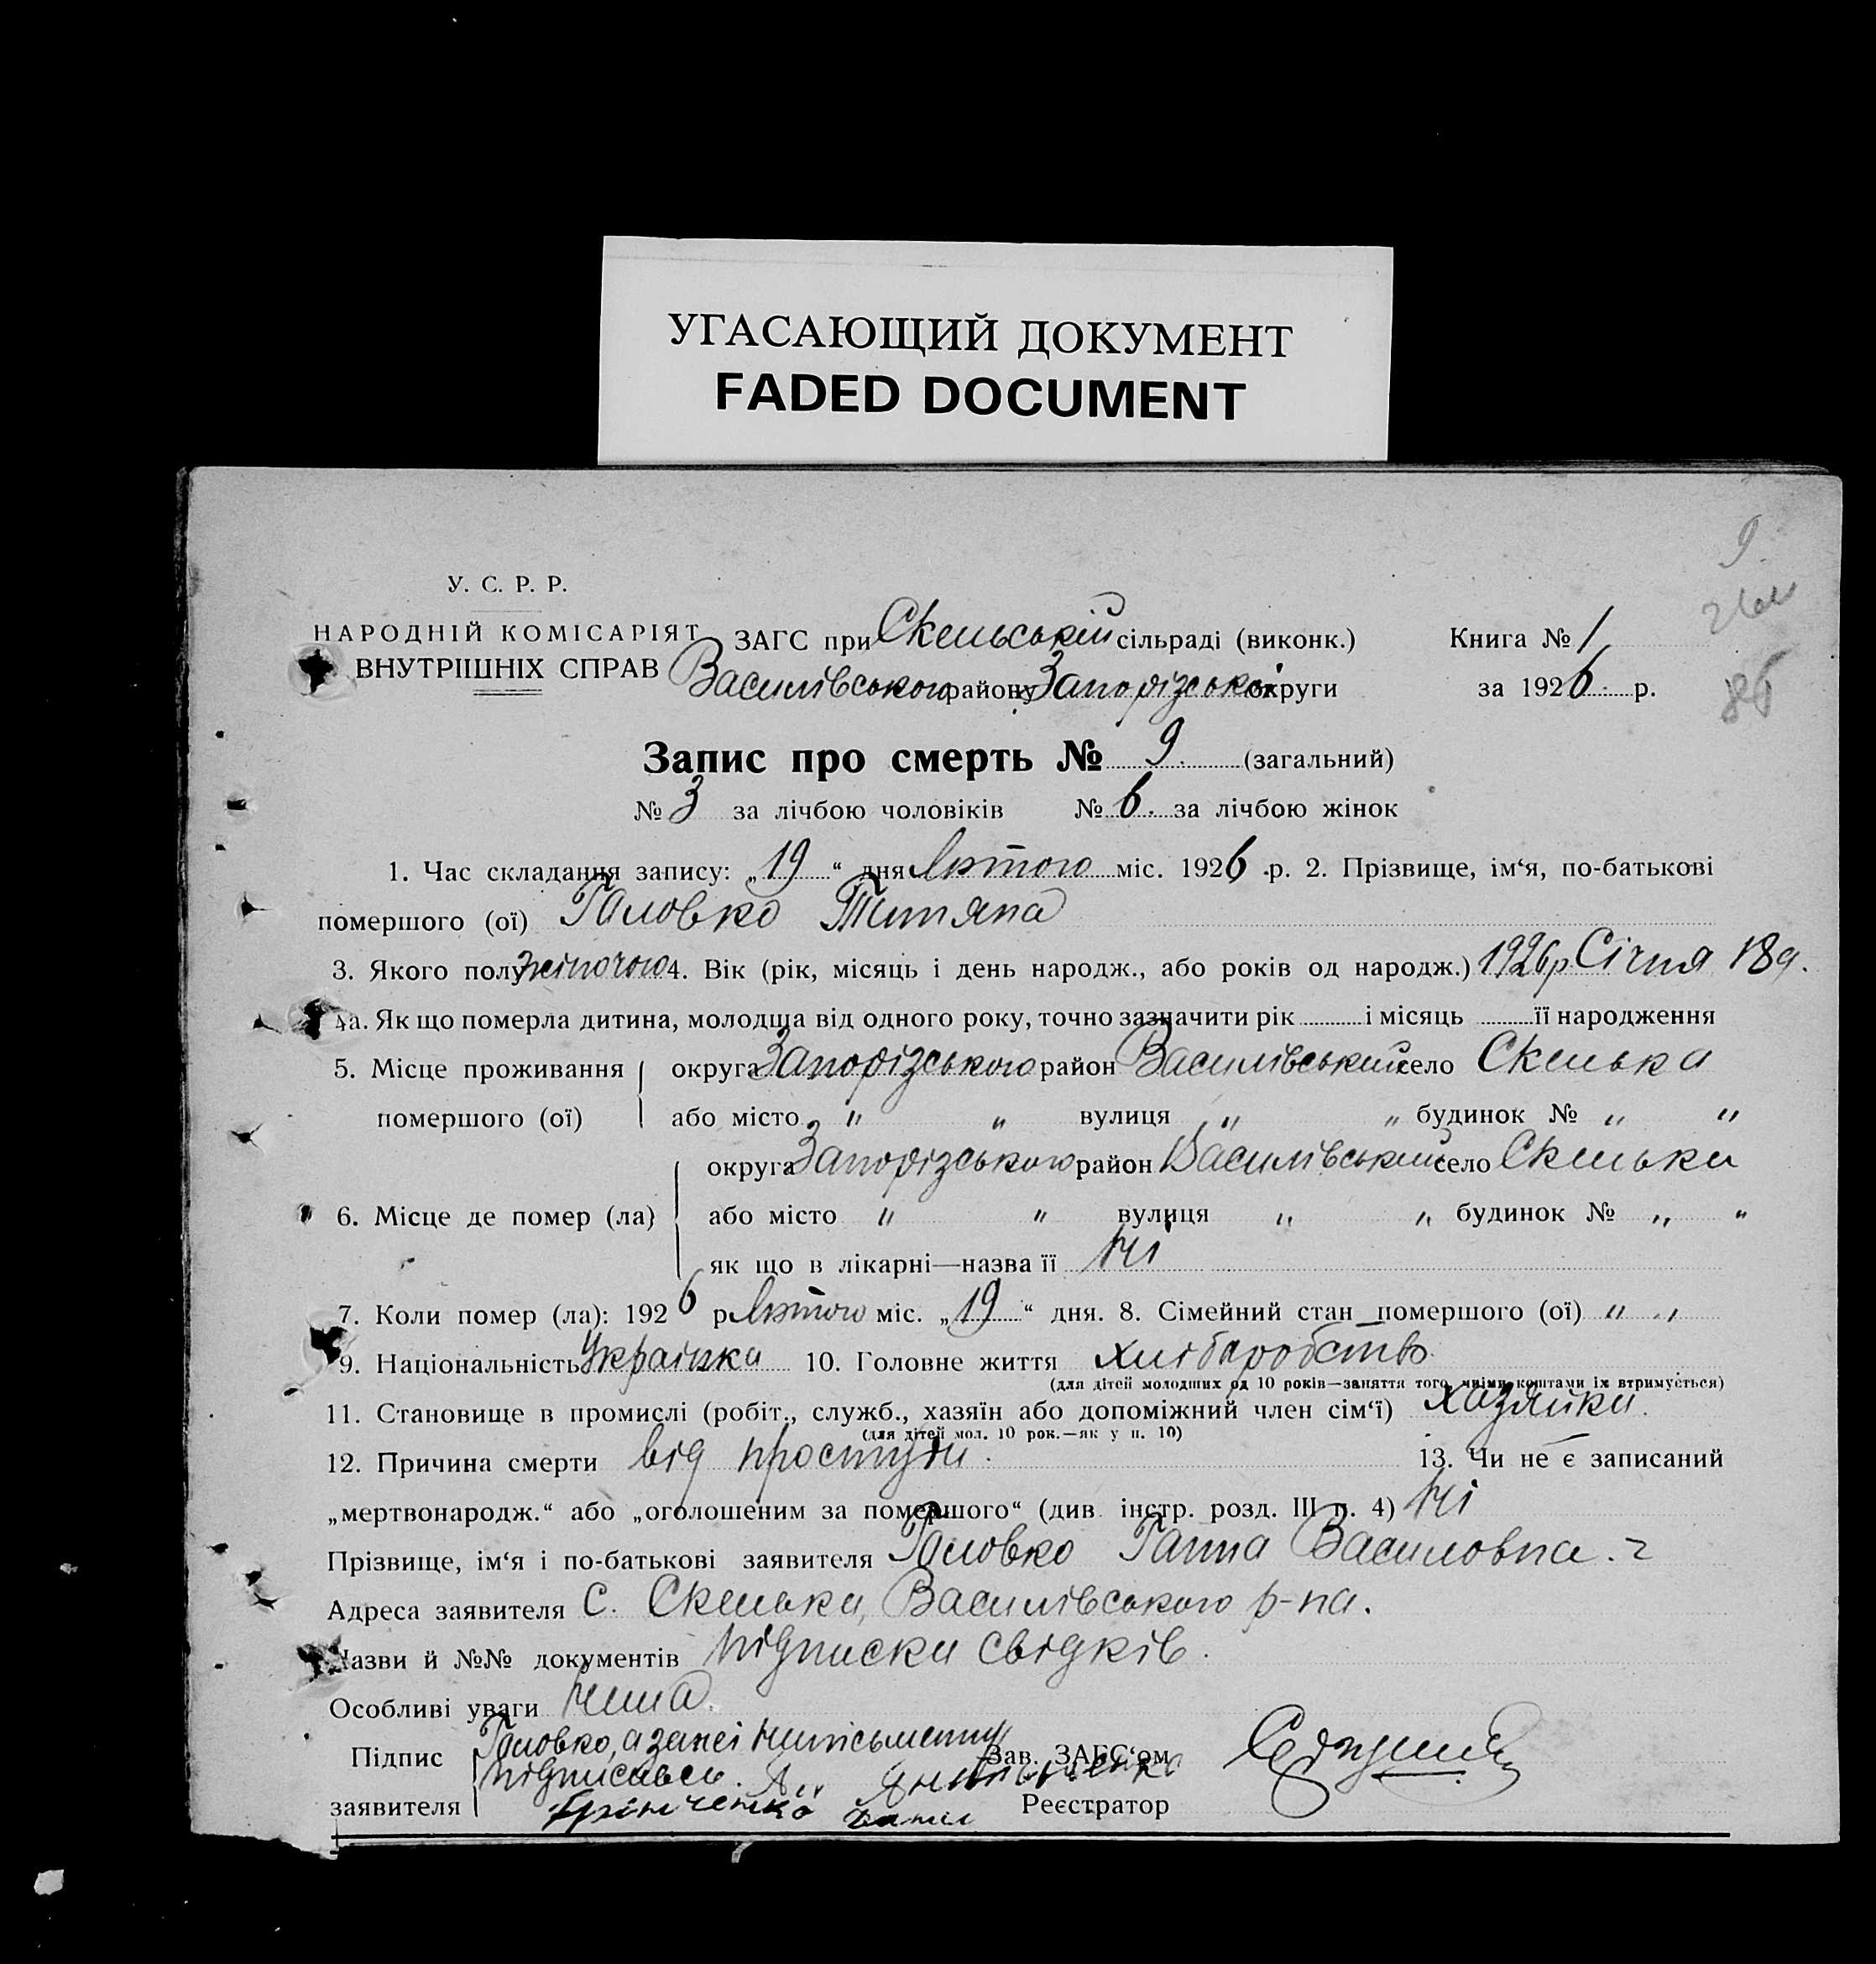 УГАСАЮЩИЙ ДОКУМЕНТ
FADED DOCUMENT
9
У. С. Р. Р.
НАРОДНІЙ КОМІСАРІЯТ
ВНУТРІШНІХ СПРАВ
ЗАГС при Скельській сільраді (виконк.)
Василівського району Запорізської округи
Книга № 1
за 1926 р.
Запис про смерть № 9. (загальний)
№ 3 за лічбою чоловіків № 6. за лічбою жінок
1. Час складання запису: „19“ дня Лютого міс. 1926 р. 2. Прізвище, ім‘я, по-батькові
помершого (ої) Головко Титяна
3. Якого полу жіночого 4. Вік (рік, місяць і день народж., або років од народж.) 1926р Січня 18д.
4а. Як що померла дитина, молодща від одного року, точно зазначити рік і місяць її народження
5. Місце проживання помершого (ої)
округа Запорізського район Василівський село Скелька
або місто " " вулиця " " будинок № " "
6. Місце де помер (ла)
округа Запорізського район Василівський село Скельки
або місто " " вулиця " " будинок № " "
як що в лікарні—назва її Ні
7. Коли помер (ла): 1926 р Лютого міс. „19“ дня. 8. Сімейний стан помершого (ої) " "
9. Національність Українка 10. Головне життя хлібаробство
(для дітей молодших од 10 років—заняття того, чиїми коштами їх втримується)
11. Становище в промислі (робіт., служб., хазяїн або допоміжний член сім‘ї) хазяйка.
(для дітей мол. 10 рок.—як у п. 10)
12. Причина смерти від простуди. 13. Чи не є записаний
„мертвонародж.“ або „оголошеним за помершого“ (див. інстр. розд. III п. 4) Ні
Прізвище, ім‘я і по-батькові заявителя Головко Ганна Василовна.
Адреса заявителя С. Скельки, Василівського р-на.
Назви й №№ документів підписки свідків.
Особливі уваги Нема.
Підпис заявителя Головко, а занеї Неписьменну
підписався.
Грінченко
Зав. ЗАГС‘ом
Реєстратор